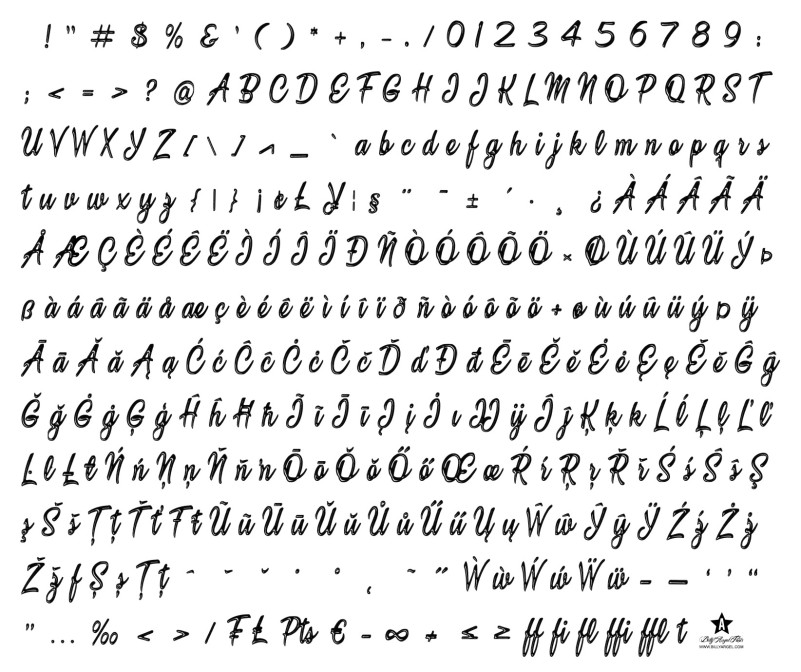 ! " # $ % & ' ( ) * + , - . / 0 1 2 3 4 5 6 7 8 9 :
; < = > ? @ A B C D E F G H I J K L M N O P Q R S T
U V W X Y Z [ \ ] ^ _ ` a b c d e f g h i j k l m n o p q r s
t u v w x y z { | } ¡ ¢ £ ¥ ¦ § ¨ ¯ ± ´ · ¸ ¿ À Á Â Ã Ä
Å Æ Ç È É Ê Ë Ì Í Î Ï Ð Ñ Ò Ó Ô Õ Ö × Ø Ù Ú Û Ü Ý Þ
ß à á â ã ä å æ ç è é ê ë ì í î ï ð ñ ò ó ô õ ö ÷ ø ù ú û ü ý þ ÿ
Ā ā Ă ă Ą ą Ć ć Ĉ ĉ Ċ ċ Č č Ď ď Đ đ Ē ē Ĕ ĕ Ė ė Ę ę Ě ě Ĝ ĝ
Ğ ğ Ġ ġ Ģ ģ Ĥ ĥ Ħ ħ Ĩ ĩ Ī ī Į į İ ı IJ ij Ĵ ĵ Ķ ķ ĸ Ĺ ĺ Ļ ļ Ľ ľ
Ŀ ŀ Ł ł Ń ń Ņ ņ Ň ň ŉ Ō ō Ŏ ŏ Ő ő Œ œ Ŕ ŕ Ŗ ŗ Ř ř Ś ś Ŝ ŝ Ş
ş Š š Ţ ţ Ť ť Ŧ ŧ Ũ ũ Ū ū Ŭ ŭ Ů ů Ű ű Ų ų Ŵ ŵ Ŷ ŷ Ÿ Ź ź Ż ż
Ž ž ƒ Ș ș Ț ț ˆ ˘ ˇ ˙ ˚ ˛ ˜ ˝ Ẁ ẁ Ẃ ẃ Ẅ ẅ – — ‘ ’ “
” … ‰ ‹ › ⁄ ₣ ₤ ₧ € − ∞ ≠ ≤ ≥ ff fi fl ffi ffl t
Billy Argel Fonts
WWW.BILLYARGEL.COM